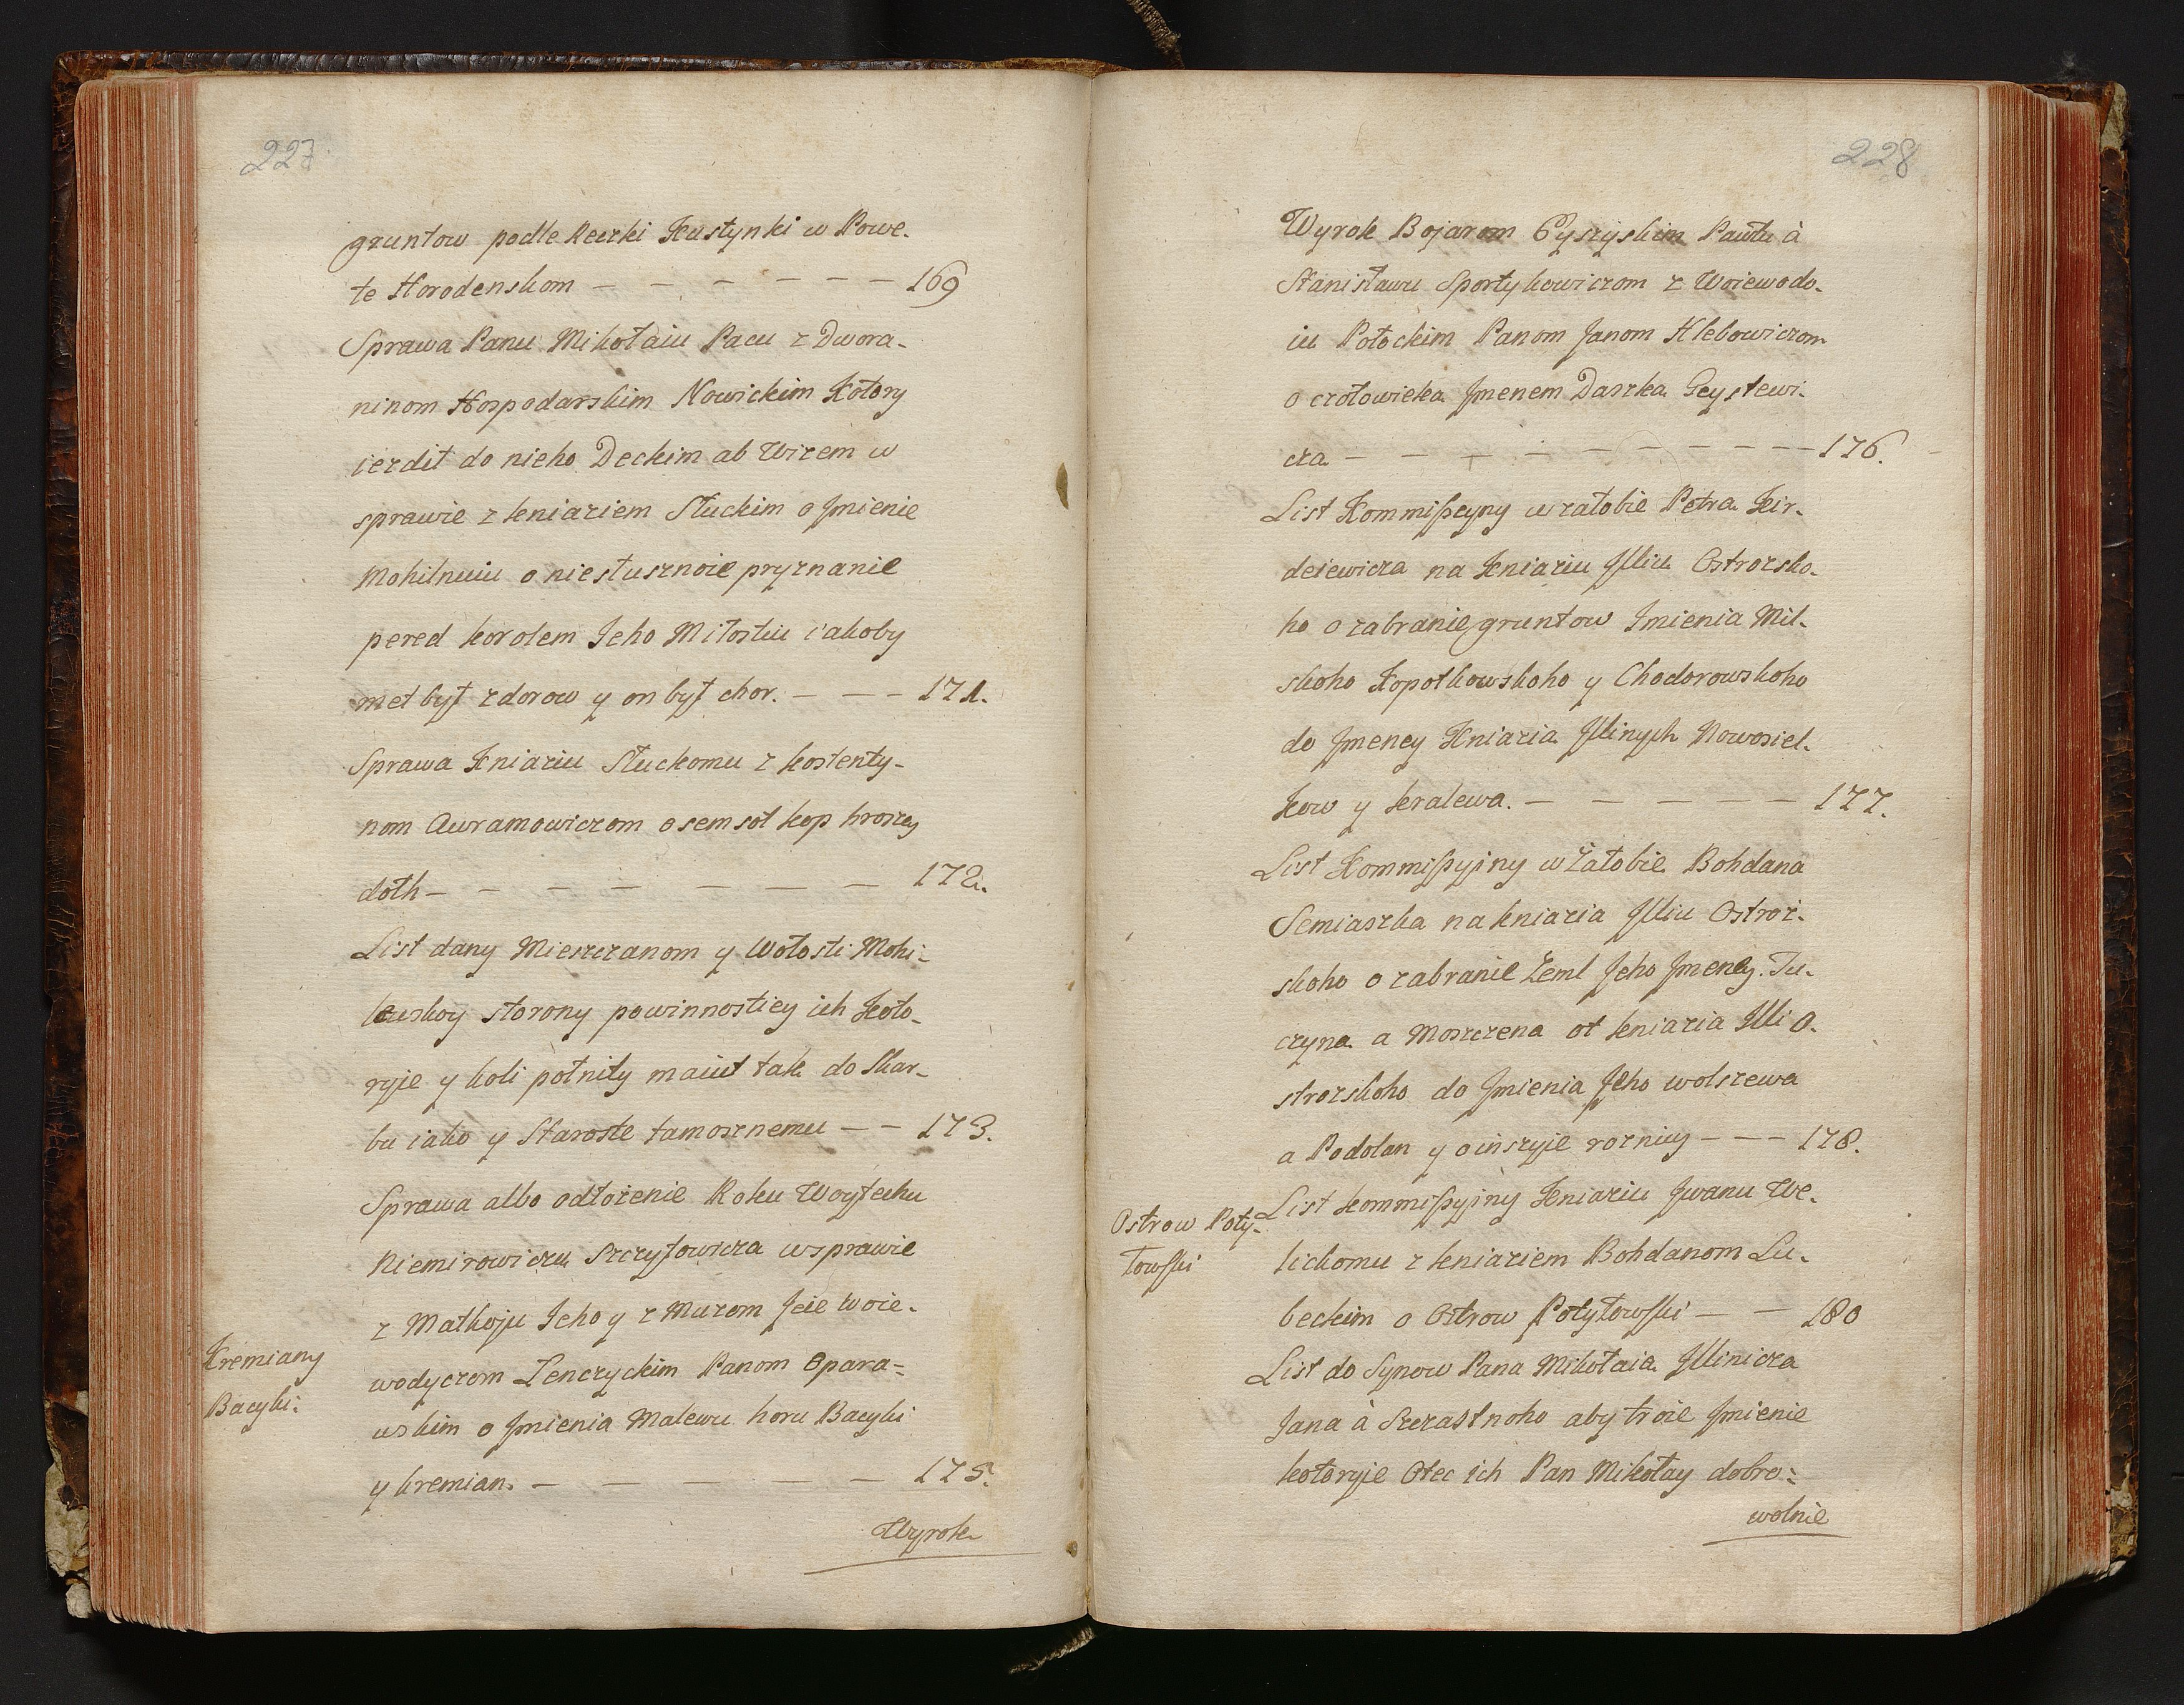 227.
gruntow podle Reczki Kustynki w Powe-
te Horodenskom — — — — — — 169
Sprawa Panu Mikołaiu Pacu z Dwora-
ninom Hospodarskim Nowickim Kotory
iezdit do nieho Deckim ab Wizem w
sprawie z kniaziem Słuckim o Jmienie
Mohilnuiu o niesłusznoie pryznanie
pered korolem Jeho Miłostiu iakoby
met był zdorow y on był chor. — — — 171.
Sprawa Kniaziu Słuckomu z kostenty-
nom Awramowiczom o semsot kop hroszey
doth — — — — — — — 172.
List dany Mieszczanom y Wołosti Mohi-
lewskoy storony powinnostiey ich Koto-
ryie y koli połnity maiut tak do Skar-
bu iako y Staroste tamosznemu — — 173.
Sprawa albo odłożenie Roku Woytechu
Niemirowiczu Szczytowicza w sprawie
z Matkoju Jeho y z Mużom Jeie Woie-
wodyczom Lenczyckim Panom Opara-
wskim o Jmienia Malewu horu Bacyki
y kremian. — — — — — 175.
Kremiany
Bacyki:
Wyrok
228
Wyrok Bojarom Cyszyskim Pawłu à
Stanisławu Sportykowiczom z Woiewodo-
iu Połockim Panom Janom Hlebowiczom
o czołowieka Jmenem Daszka Geystewi-
cza — — — — — — — — — 176.
List Kommissyiny w załobie Petra Kir-
deiewicza na Kniaziu Jlliu Ostrozsko-
ho o zabranie gruntow Imienia Mil-
skoho Kopotkowskoho y Chodorowskoho
do Jmeney Kniazia Jllinych Nowosiel-
kow y kralewa. — — — — — 177.
List Kommissyjny w Załobie Bohdana
Semiaszka na kniazia Jlliu Ostroż-
skoho o zabranie Zeml Jeho Jmeney. Tu-
czyna a Moszczena ot kniazia Jlli O-
strozskoho do Jmienia Jeho wolszewa
a Podolan y o inszyie rozniuy — — — 178.
List kommissyjny Kniaziu Jwanu We-
lickomu z kniaziem Bohdanom Lu-
beckim o Ostrow Potytowski — — 180
Ostrow Poty-
towski
List do Synow Pana Mikołaia Jllinicza
Jana à Szczastnoho aby troie Jmienie
kotoryie Otec ich Pan Mikołay dobro-
wolnie